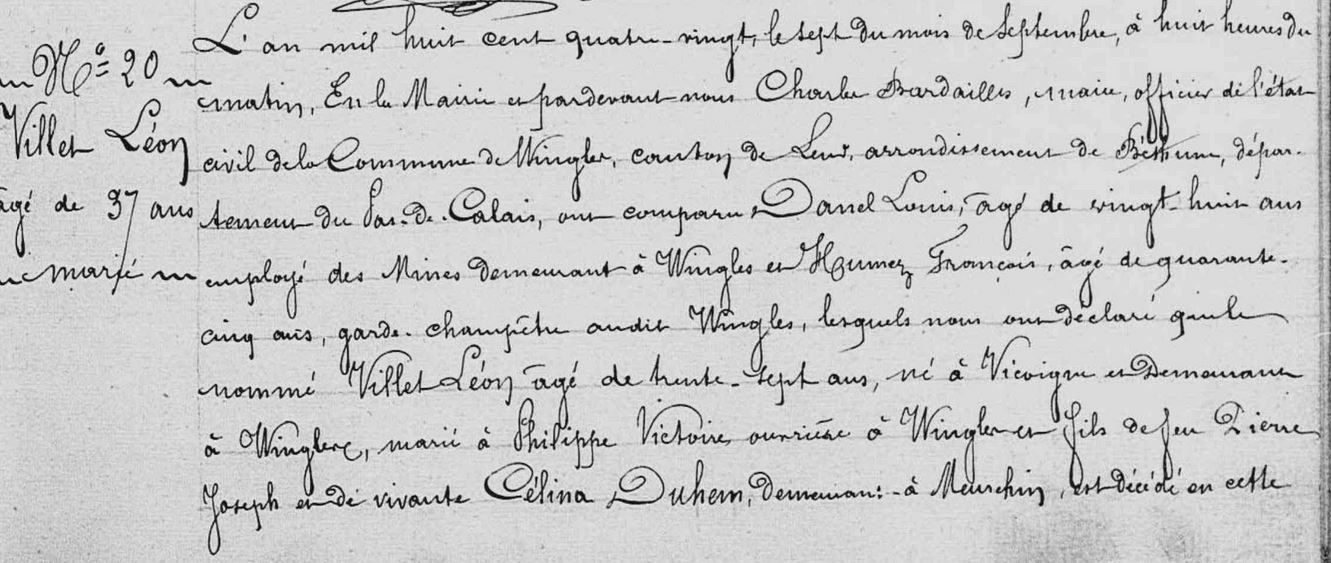 N° 20
Villet Léon
âgé de 37 ans
marié
L'an mil huit cent quatre-vingt, le sept du mois de Septembre, à huit heures du
matin, En la Mairie et pardevant nous Charles Bardailles, maire, officier de l'état
civil de la Commune de Wingles, canton de Lens, arrondissement de Béthune, dépar-
tement du Pas-de-Calais, ont comparu Danel Louis, âgé de vingt-huit ans
employé des Mines demeurant à Wingles et Humez François, âgé de quarante-
cinq ans, garde-champêtre audit Wingles, lesquels nous ont déclaré que le
nommé Villet Léon âgé de trente-sept ans, né à Vicoigne et Demeurant
à Wingles, marié à Philippe Victoire, ouvrière à Wingles et fils de feu Pierre
Joseph et de vivante Célina Duhem, demeurant à Meurchin, est décédé en cette